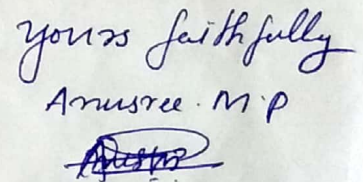 Yours faithfully
Anusree. M.P